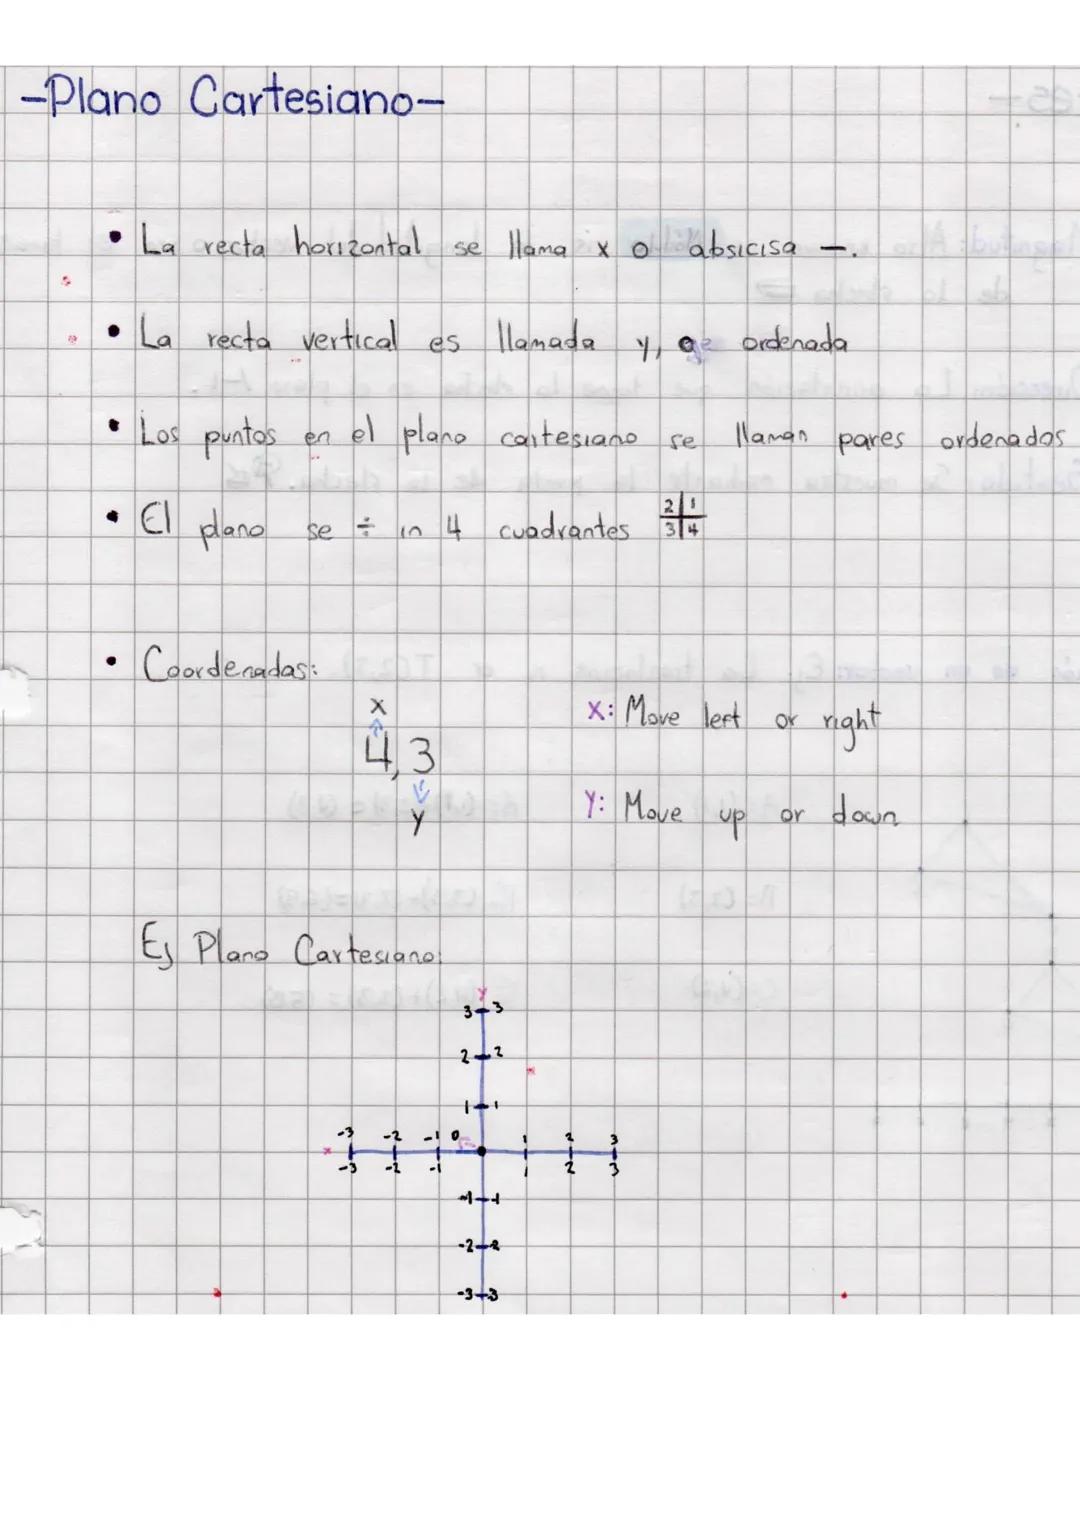 -Plano Cartesiano-
• La recta horizontal se llama x o absicisa —.
• La recta vertical es llamada y, o ordenada
• Los puntos en el plano cartesiano se llaman pares ordenados
• El plano se ÷ in 4 cuadrantes 2 1
3 4
• Coordenadas:
x
4,3
y
X: Move left or right
Y: Move up or down
Ej Plano Cartesiano:
y
3 3
2 2
1 1
-3 -2 -1 0 1 2 3
x
-3 -2 -1 1 2 3
-1 -1
-2 -2
-3 -3